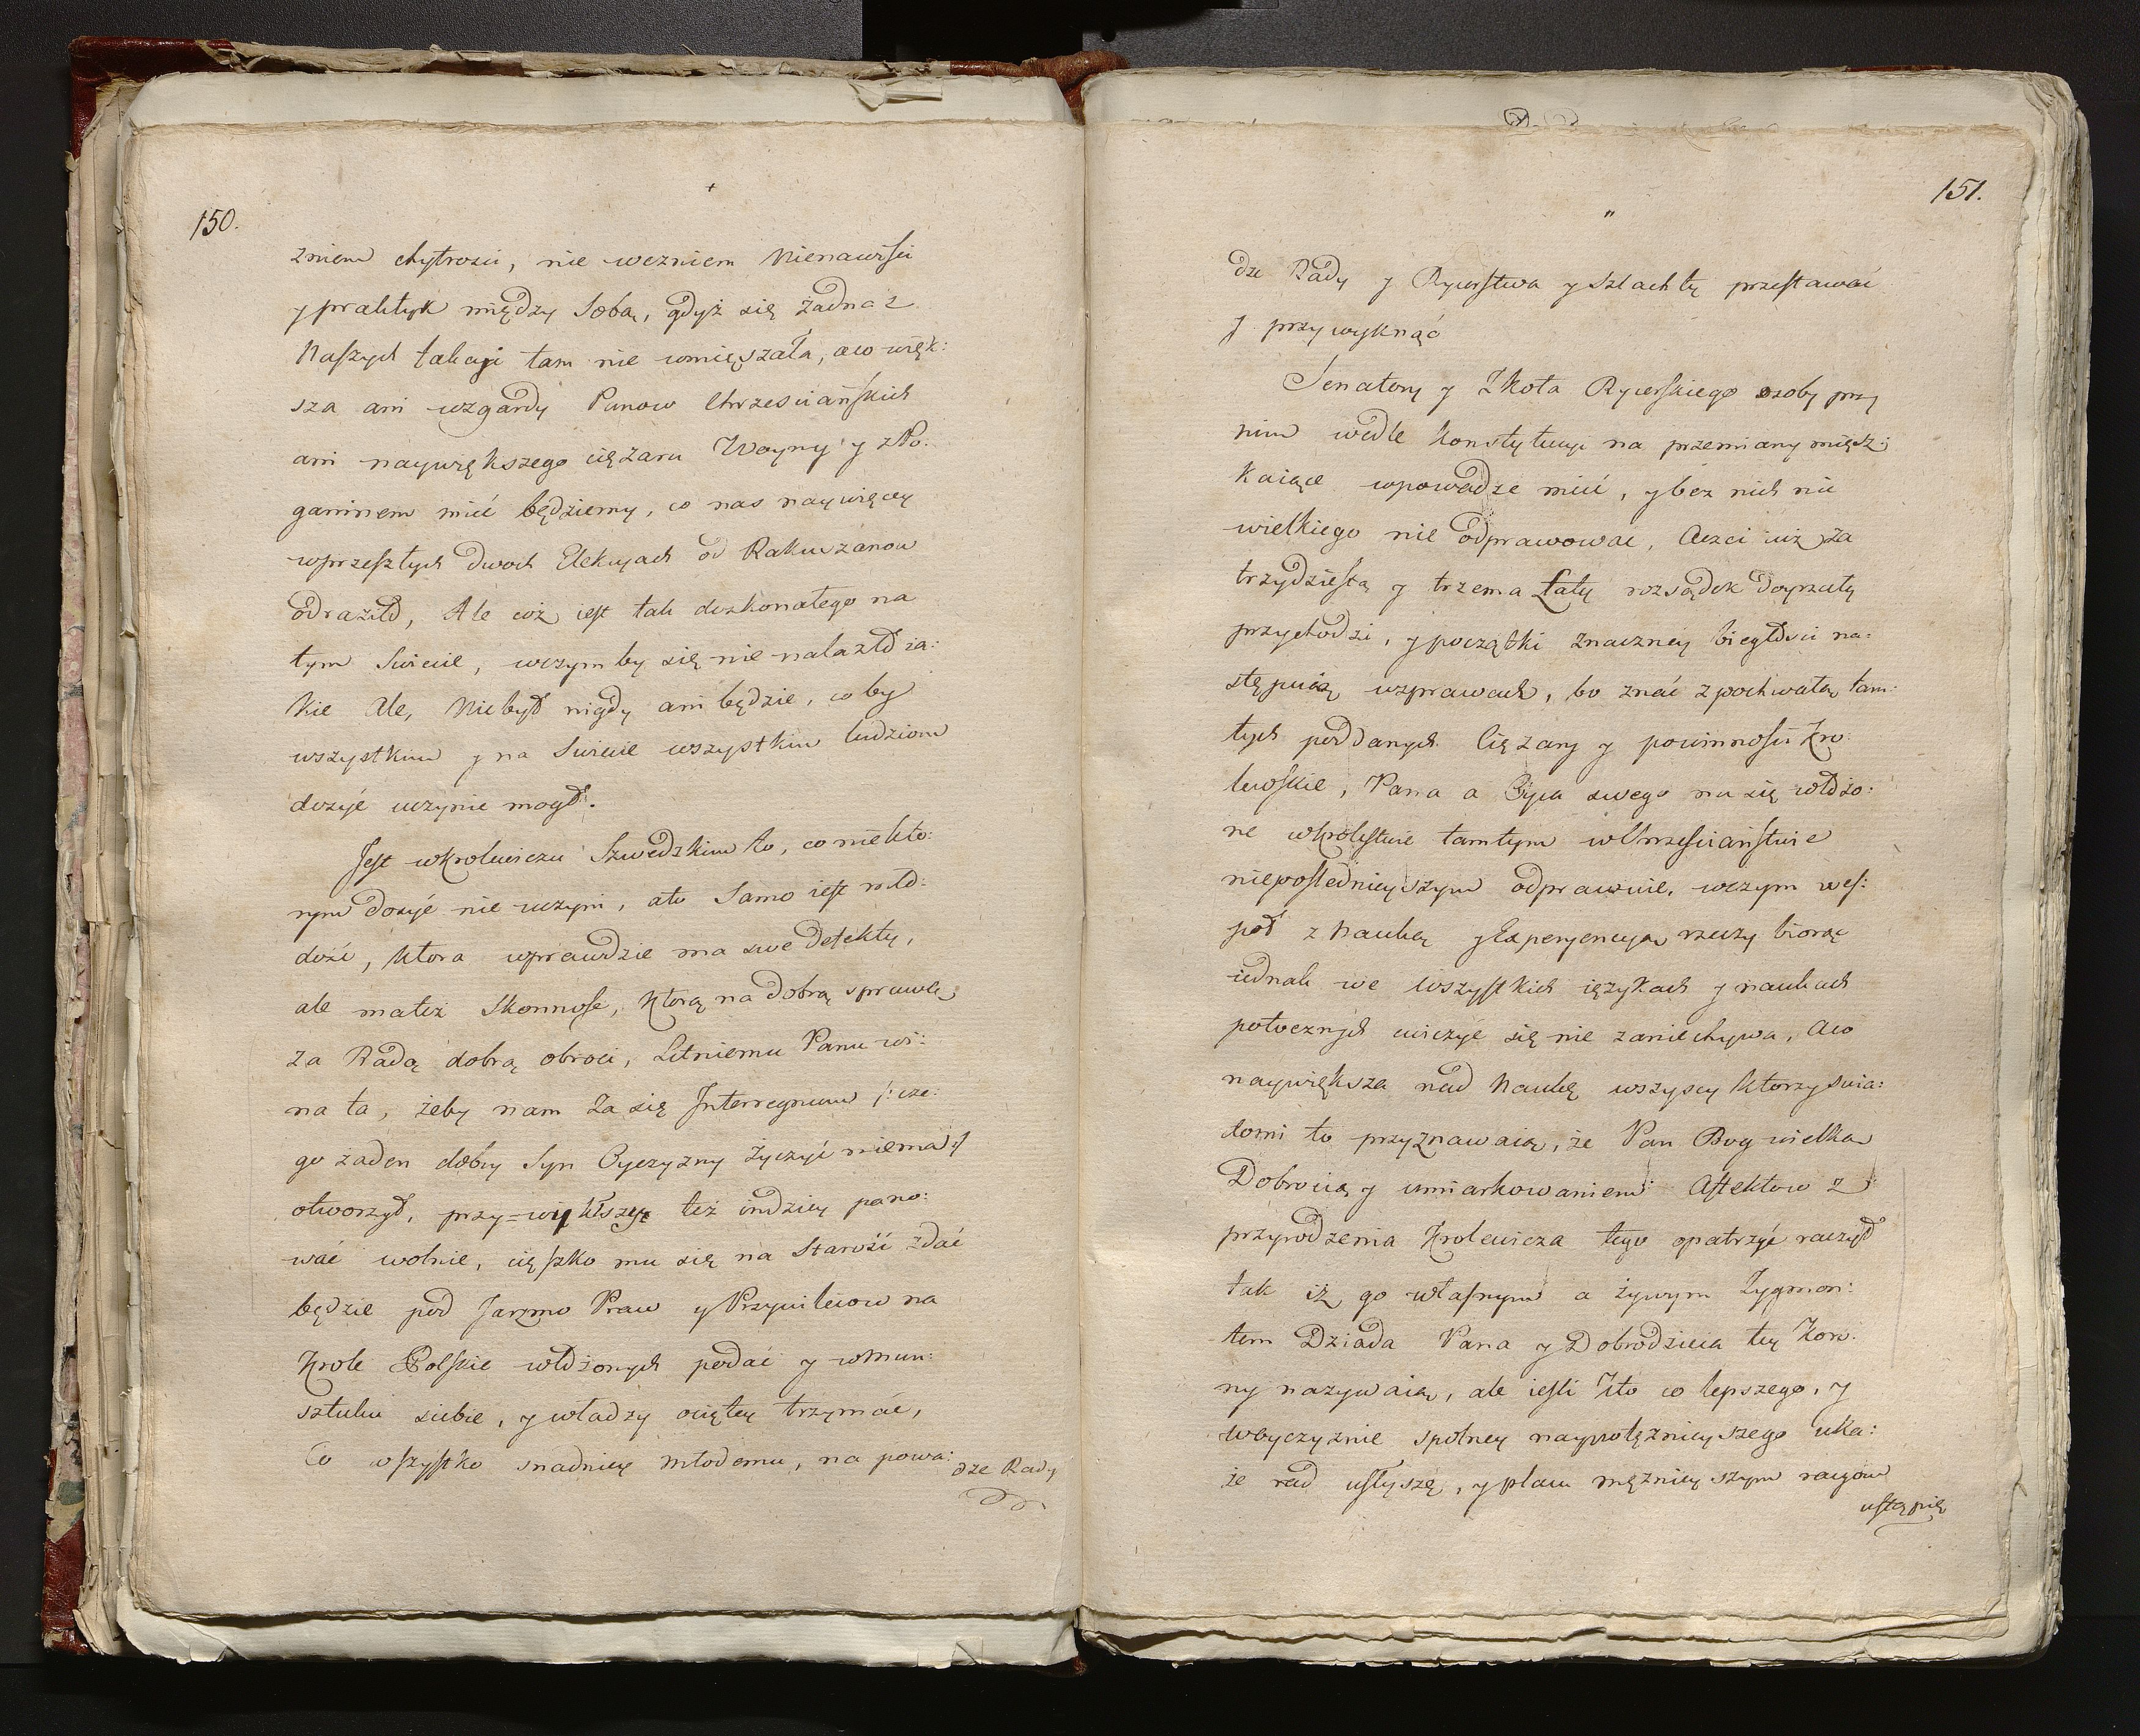 150.
zniem chytrosci, nie wezniem Nienawisci
y praktyk między Sobą, gdyż się żadna z
Naszych takaj tam nie wmięszała, aco więk:
sza ani wzgardy Panow Chrzesciańskich
ani naywiększego ciężaru Woyny y z Po:
ganinem mieć będziemy, co nas naywięcey
wprzeszłych dwoch Elekcyach od Rakuszanow
odraziło, Ale coż iest tak doskonałego na
tym Swiecie, wczym by się nie nalazło ia:
kie Ale, Niebył nigdy ani będzie, coby
wszystkim y na Swiecie wszystkim ludziom
dosyć uczynic mogł.
Jest wkrolewiczu Szwedzkim to, co niekto:
rym dosyć nie uczyni, ato Samo iest mło:
dość, ktora wprawdzie ma swe Defekty,
ale mateż Skonnosc, ktorą na dobrą sprawę
za Radą dobrą obroci, Letniemu Panu wi:
na ta, żeby nam Za się Interregnum /: cze:
go żaden dobry Syn Oyczyzny życzyć niema :/
otworzył, przy=wykłszy też indziey pano:
wać wolnie, cięszko mu się na Starość zdać
będzie pod Jarzmo Praw y Przywileiow na
Krole Polskie włożonych podać y wMun:
sztuku siebie, y władzy ociętey trzymać,
Co wszystko snadniey młodemu, na powa:
dze Rady
151.
dze Rady y Rycerstwa y Szlachty przestawać
y przywyknąć
Senatory y Zkoła Rycerskiego osoby przy
nim wedle Konstytucyi na przemiany mięsz:
kaiące wpowadze mieć, y bez nich nic
wielkiego nie odprawowac, Aczci iuż za
trzydziestą y trzema Laty rozsądek doyrzały
przychodzi, y początki znaczney biegłosci na:
stępuią wsprawach, bo znać z pochwałą tam:
tych poddanych Ciężary y powinnosci Kro:
lewskie, Pana a Oyca swego na się włożo:
ne wkrolestwie tamtym wChrzesciaństwie
nieposledniejszym odprawuie, wczym wes:
poł z Nauką y Experyencyą rzeczy biorąc
iednak we wszystkich ięzykach y naukach
potocznych cwiczyć się nie zaniechywa, Aco
naywiększa nad Naukę wszyscy ktorzy swia:
domi to przyznawaią, że Pan Bog wielką
Dobrocią y umiarkowaniem Affektow z
przyrodzenia Krolewicza tego opatrzyć raczył
tak iż go własnym a żywym Zygmon:
tem Dziada Pana y Dobrodzieia tey Koro:
ny nazywaią, ale iesli Kto co lepszego, y
wOyczyznie spolney naypotężnieyszego uka:
że rad usłyszę, y placu mężnieyszym racyom
ustąpię